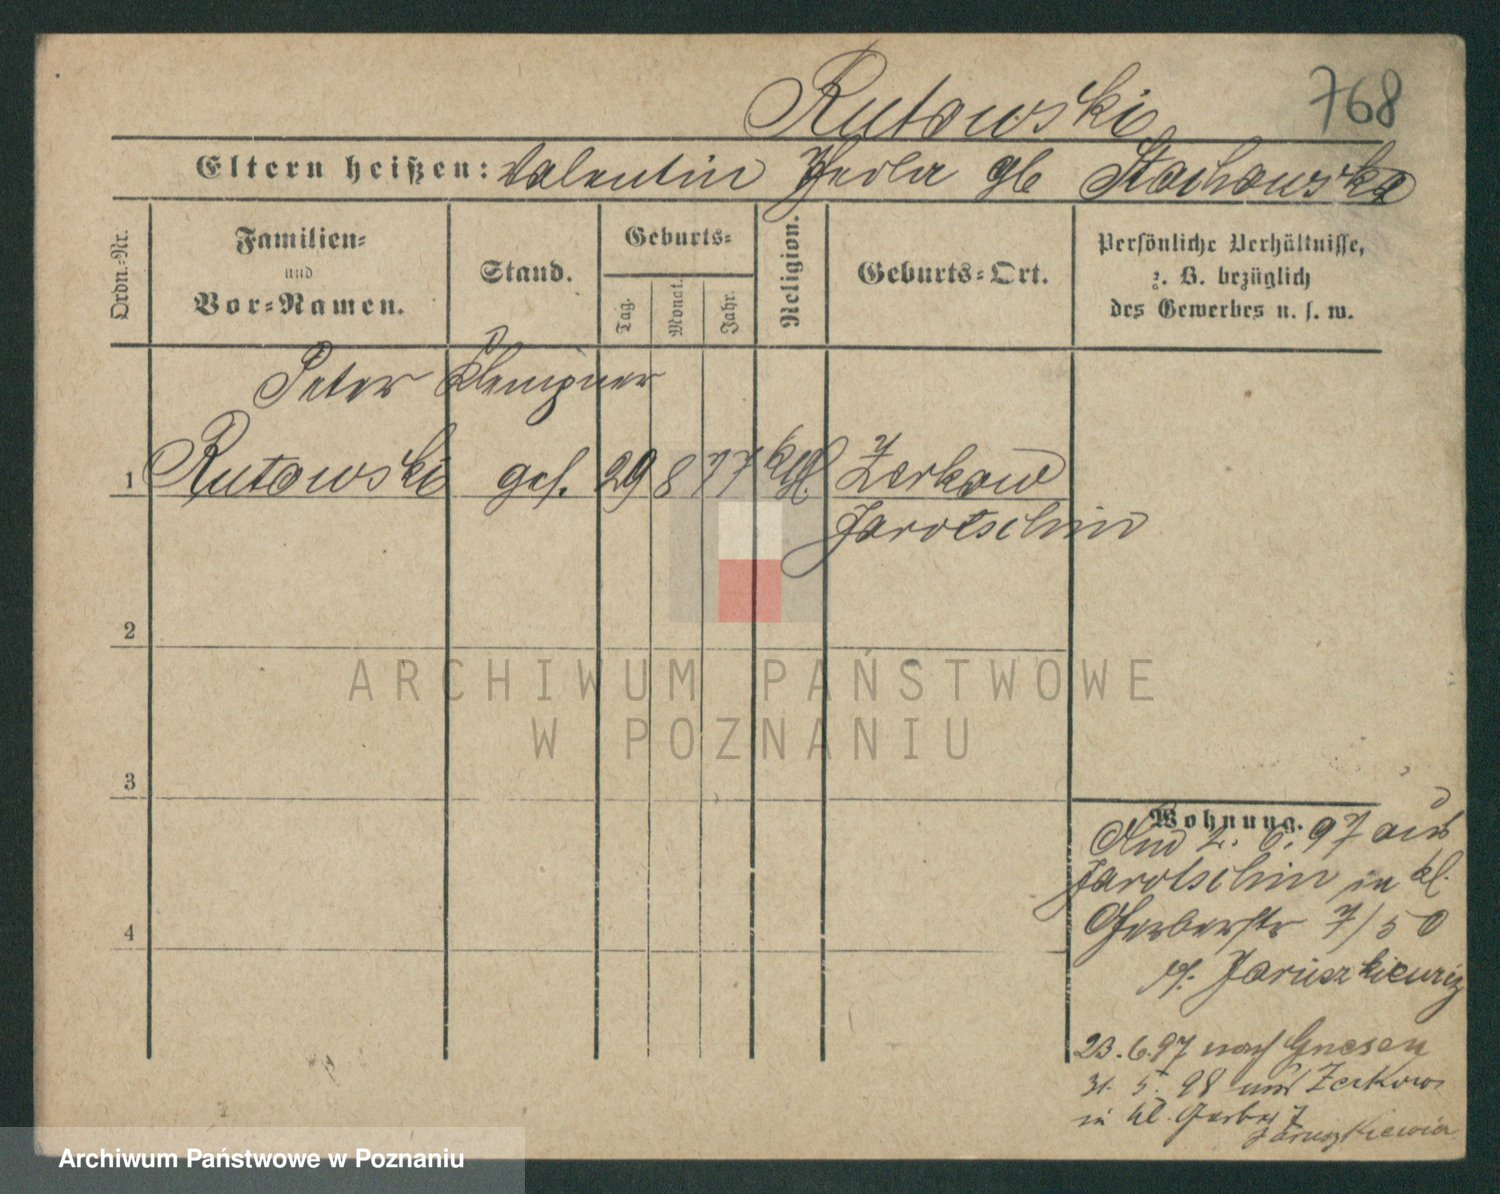 Rutowski
768
Eltern heißen: Valentin Thekla gb Stachowska
Ordn.-Nr.
Familien-
und
Vor-Namen.
Stand.
Geburts-
Tag.
Monat.
Jahr.
Religion.
Geburts-Ort.
Persönliche Verhältnisse,
z. B. bezüglich
des Gewerbes u. s. w.
Peter Klempner
1 Rutowski ges. 29 8 77 kth. Zerkow
Jarotschin
2
3
4
Wohnung.
2. 6. 97 aus
Jarotschin in kl.
Gerberstr 7/50
Januszkiewicz
23. 6. 97 nach Gnesen
31. 5. 98 Zerkow
in kl. Gerber 7
Januszkiewicz
ARCHIWUM PAŃSTWOWE
W POZNANIU
Archiwum Państwowe w Poznaniu